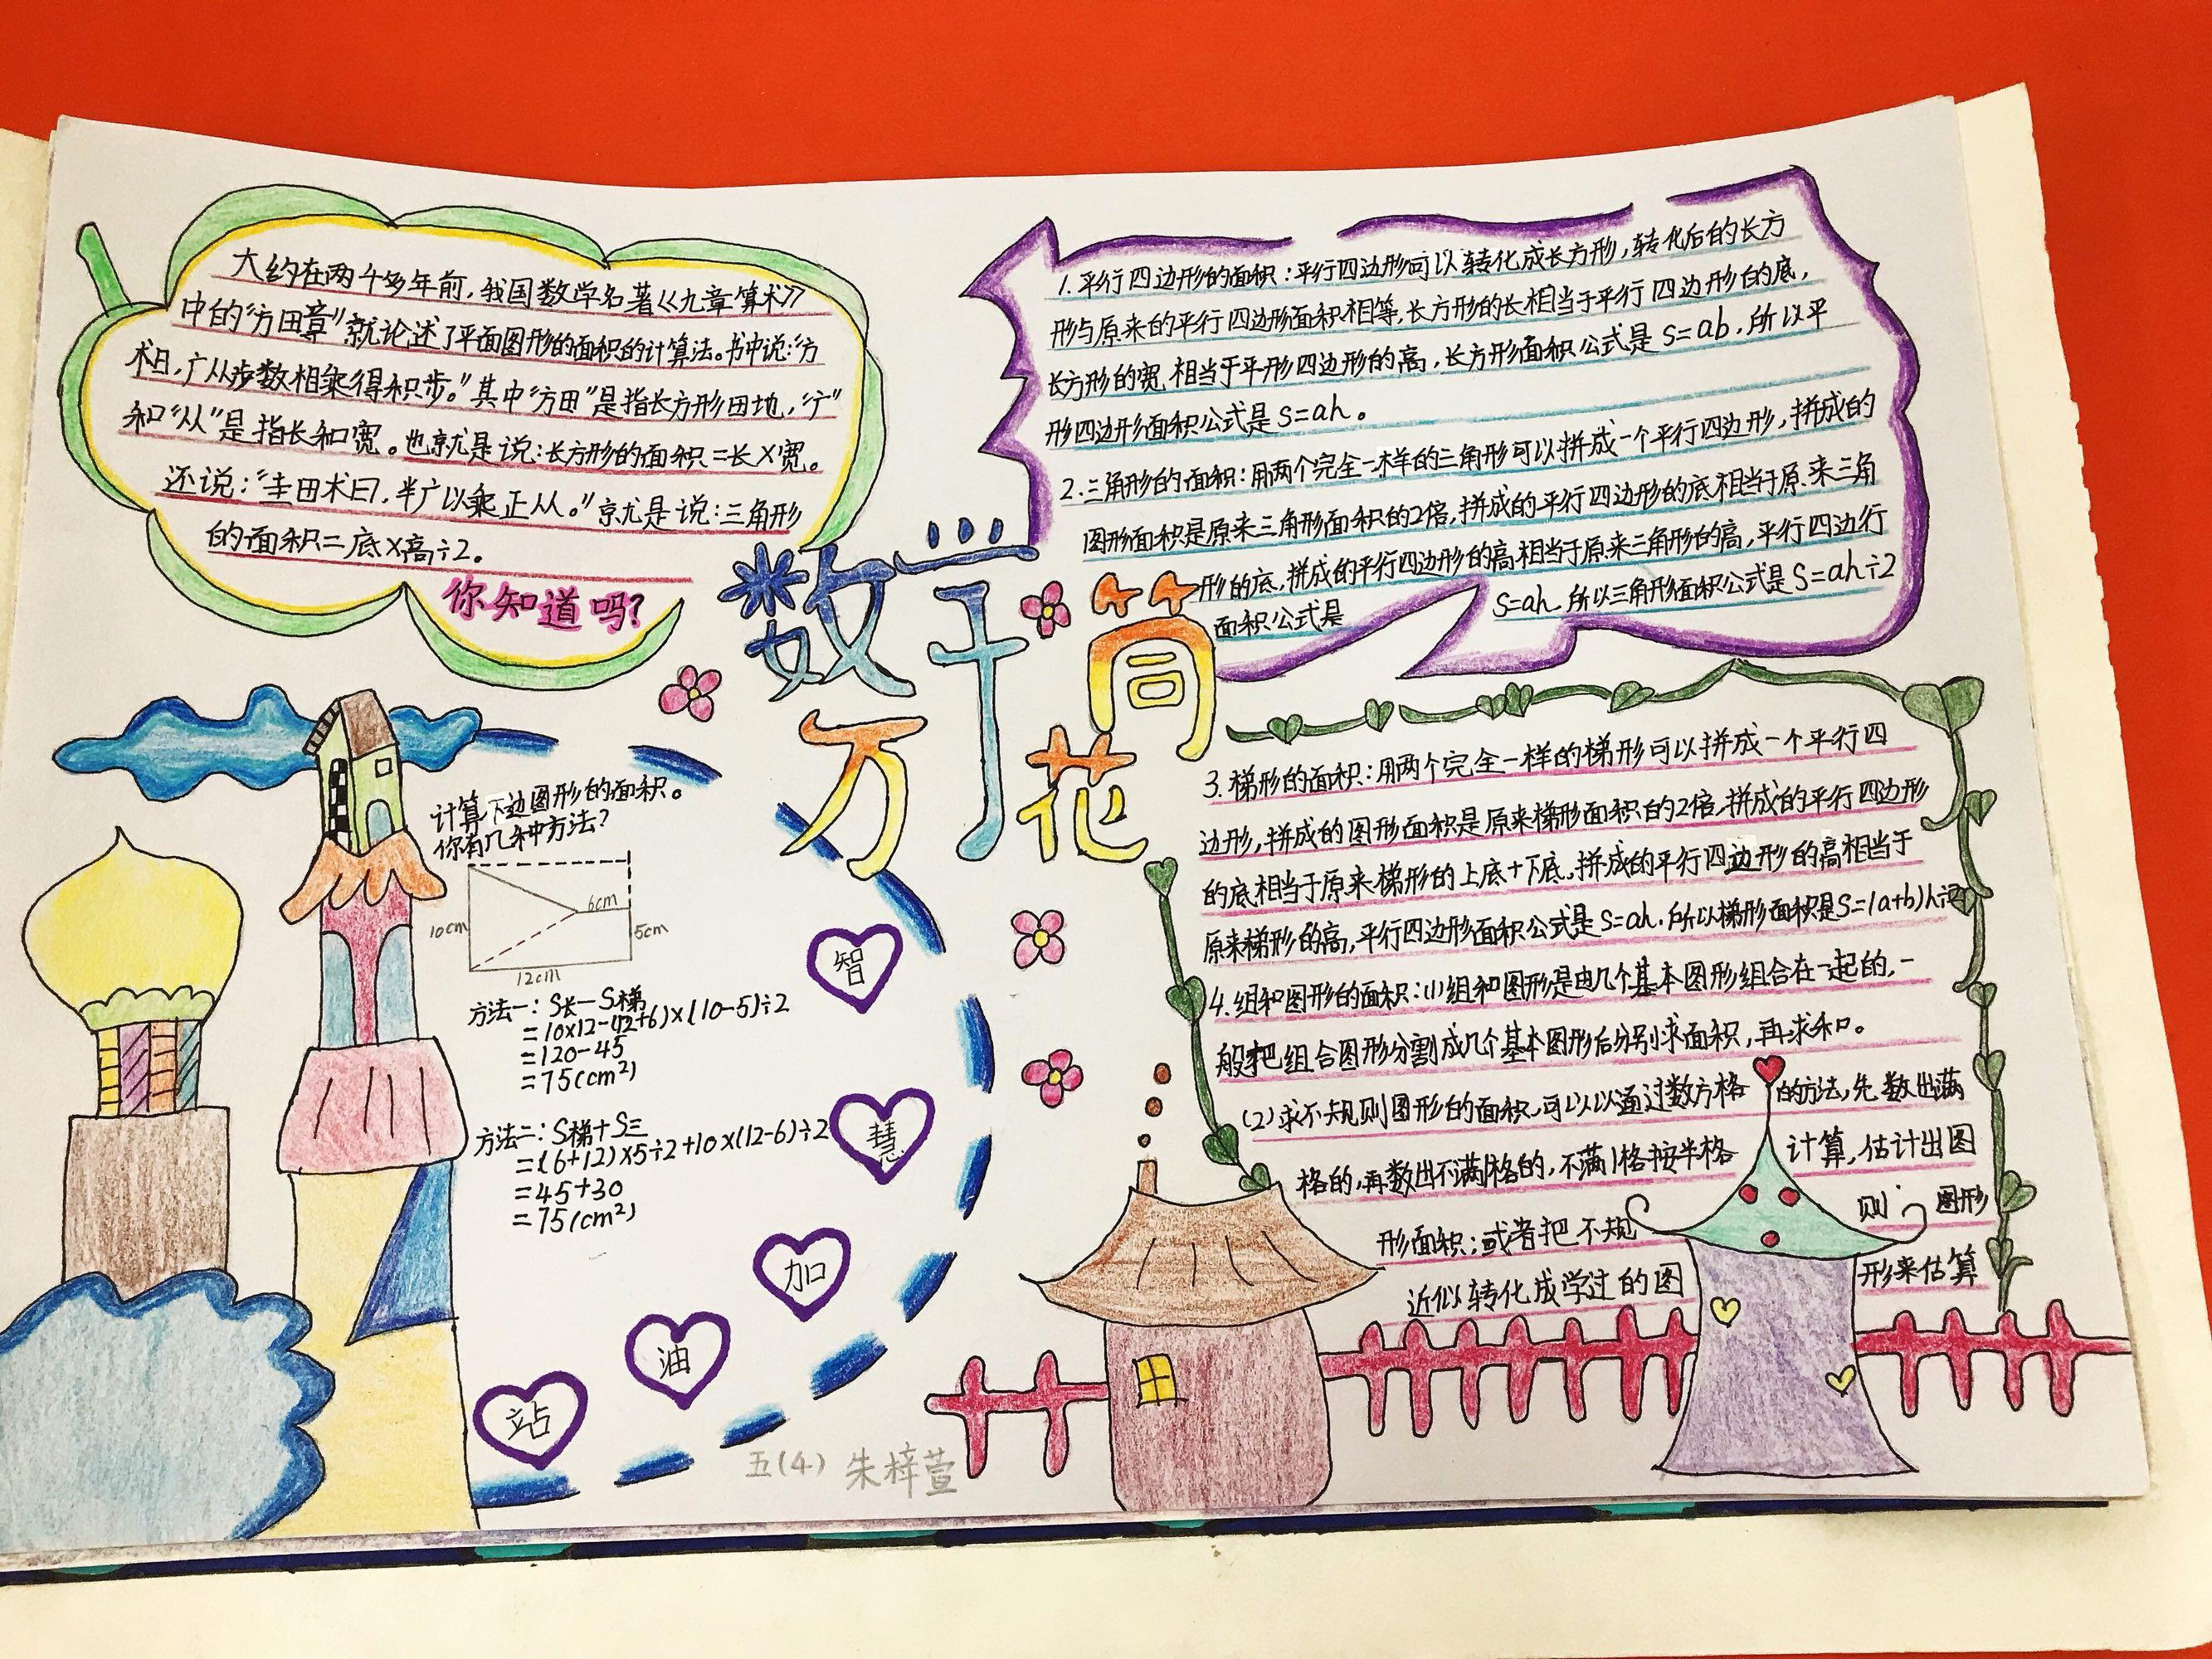 大约在两千多年前，我国数学名著《九章算术》
中的“方田章”就论述了平面图形的面积的计算法。书中说：“方
术曰，广从步数相乘得积步。”其中“方田”是指长方形田地，“广”
和“从”是指长和宽。也就是说：长方形的面积＝长×宽。
还说：“圭田术曰，半广以乘正从。”就是说：三角形
的面积＝底×高÷2。
你知道吗？
数学
万花筒
1.平行四边形的面积：平行四边形可以转化成长方形，转化后的长方
形与原来的平行四边形面积相等，长方形的长相当于平行四边形的底，
长方形的宽相当于平形四边形的高，长方形面积公式是S=ab，所以平
形四边形面积公式是S=ah。
2.三角形的面积：用两个完全一样的三角形可以拼成一个平行四边形，拼成的
图形面积是原来三角形面积的2倍，拼成的平行四边形的底相当于原来三角
形的底，拼成的平行四边形的高相当于原来三角形的高，平行四边行
面积公式是 S=ah，所以三角形面积公式是S=ah÷2
计算下边图形的面积。
你有几种方法？
6cm
10cm
5cm
12cm
方法一：S长－S梯
=10×12-(12+6)×(10-5)÷2
=120-45
=75(cm²)
方法二：S梯＋S三
=(6+12)×5÷2+10×(12-6)÷2
=45+30
=75(cm²)
智
慧
加
油
站
3.梯形的面积：用两个完全一样的梯形可以拼成一个平行四
边形，拼成的图形面积是原来梯形面积的2倍，拼成的平行四边形
的底相当于原来梯形的上底+下底，拼成的平行四边形的高相当于
原来梯形的高，平行四边形面积公式是S=ah，所以梯形面积是S=(a+b)h÷2
4.组和图形的面积：(1)组和图形是由几个基本图形组合在一起的，一
般把组合图形分割成几个基本图形后分别求面积，再求和。
(2)求不规则图形的面积，可以以通过数方格的方法，先数出满
格的，再数出不满1格的，不满1格按半格计算，估计出图
形面积；或者把不规则图形
近似转化成学过的图形来估算
五(4) 朱梓萱